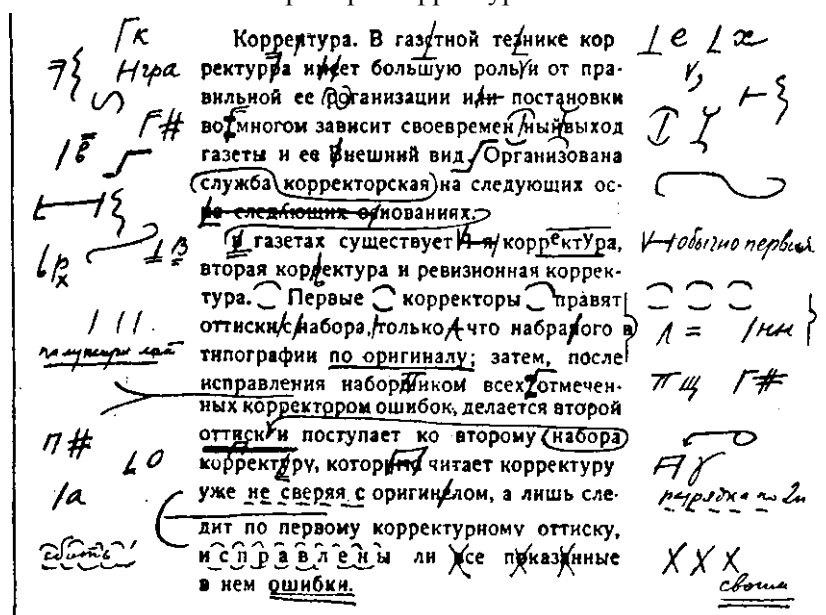 Корректура. В газетной технике кор
ректурра имеет большую роль и от пра-
вильной ее рогганизации или постановки
во многом зависит своевременный выход
газеты и ее внешний вид. Организована
служба корректорская на следующих ос-
на следующих основаниях.
в газетах существует корректура,
вторая корректура и ревизионная коррек-
тура. Первые корректоры правят
оттиски с набора, только что набраного в
типографии по оригиналу; затем, после
исправления наборщиком всех отмечен-
ных корректором ошибок, делается второй
оттиск и поступает ко второму набора
корректуру, который читает корректуру
уже не сверяя с оригиналом, а лишь сле-
дит по первому корректурному оттиску,
исправлены ли все показанные
в нем ошибки.
к
е х
Игра
#
в
В
обычно первая
р
х
= нн
полужирный
п щ #
п #
о
а
разрядка по 2п
сбить
своим